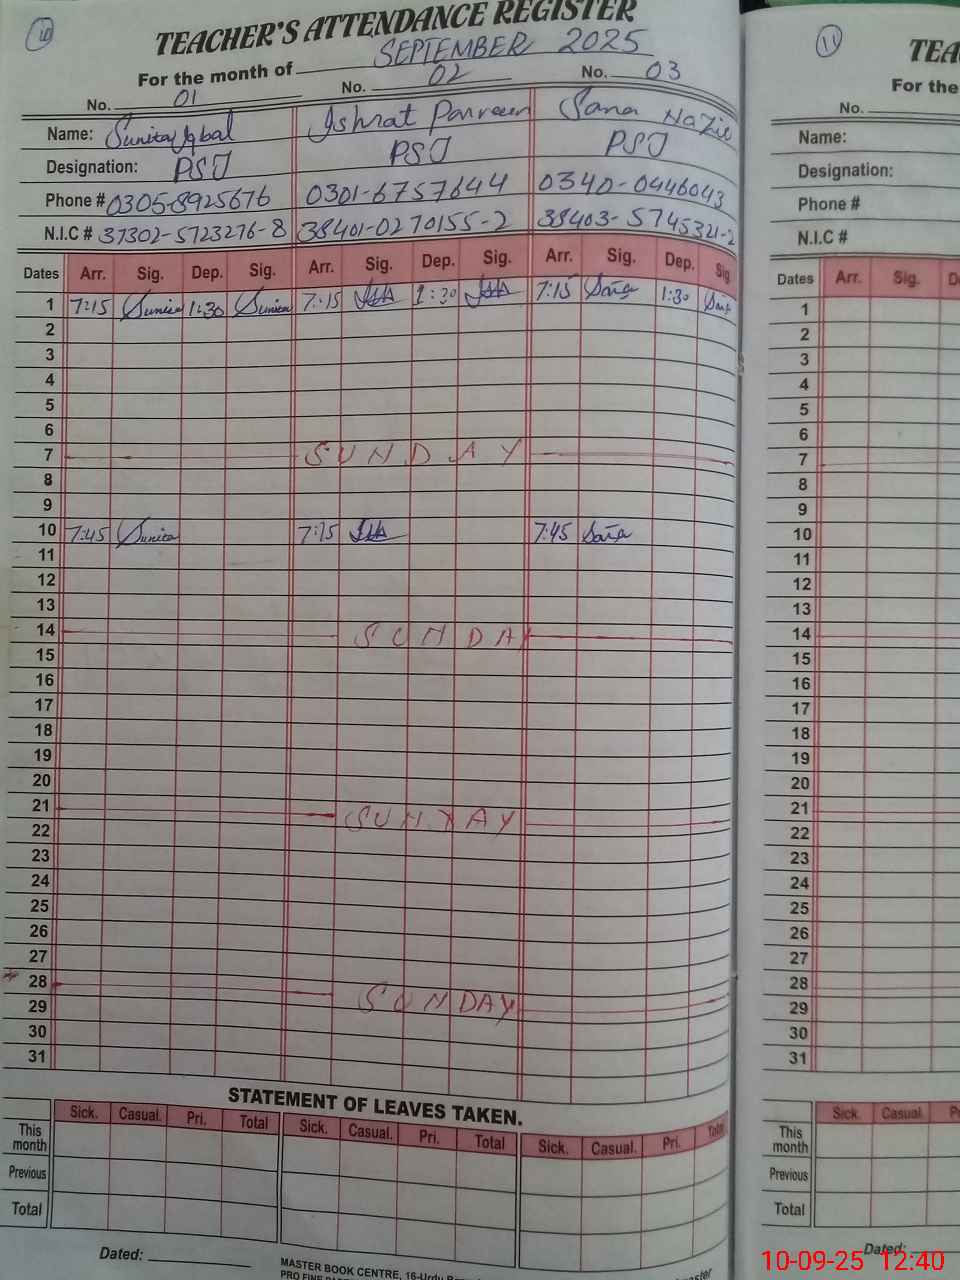 10
TEACHER'S ATTENDANCE REGISTER
For the month of SEPTEMBER 2025
No. 01 No. 02 No. 03
Name: Sunita Iqbal Ishrat Parveen Sana Nazir
Designation: PST PST PST
Phone # 0305-8925676 0301-6757644 0340-0446043
N.I.C # 37302-5723276-8 38401-0270155-2 38403-5745321-2
Dates Arr. Sig. Dep. Sig. Arr. Sig. Dep. Sig. Arr. Sig. Dep. Sig.
1 7:15 Sunita 1:30 Sunita 7:15 1:30 7:15 Sana 1:30 Sana
2
3
4
5
6
7 SUNDAY
8
9
10 7:45 Sunita 7:15 7:45 Sana
11
12
13
14 SUNDAY
15
16
17
18
19
20
21 SUNDAY
22
23
24
25
26
27
28 SUNDAY
29
30
31
STATEMENT OF LEAVES TAKEN.
Sick. Casual. Pri. Total Sick. Casual. Pri. Total Sick. Casual. Pri. Total
This month
Previous
Total
Dated:
MASTER BOOK CENTRE, 16-Urdu
11
TEA
For the
No.
Name:
Designation:
Phone #
N.I.C #
Dates Arr. Sig. D
1
2
3
4
5
6
7
8
9
10
11
12
13
14
15
16
17
18
19
20
21
22
23
24
25
26
27
28
29
30
31
Sick. Casual. P
This month
Previous
Total
Dated:
10-09-25 12:40